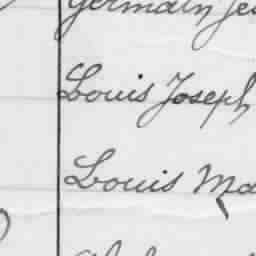 Germain Je
Louis Joseph
Louis Ma